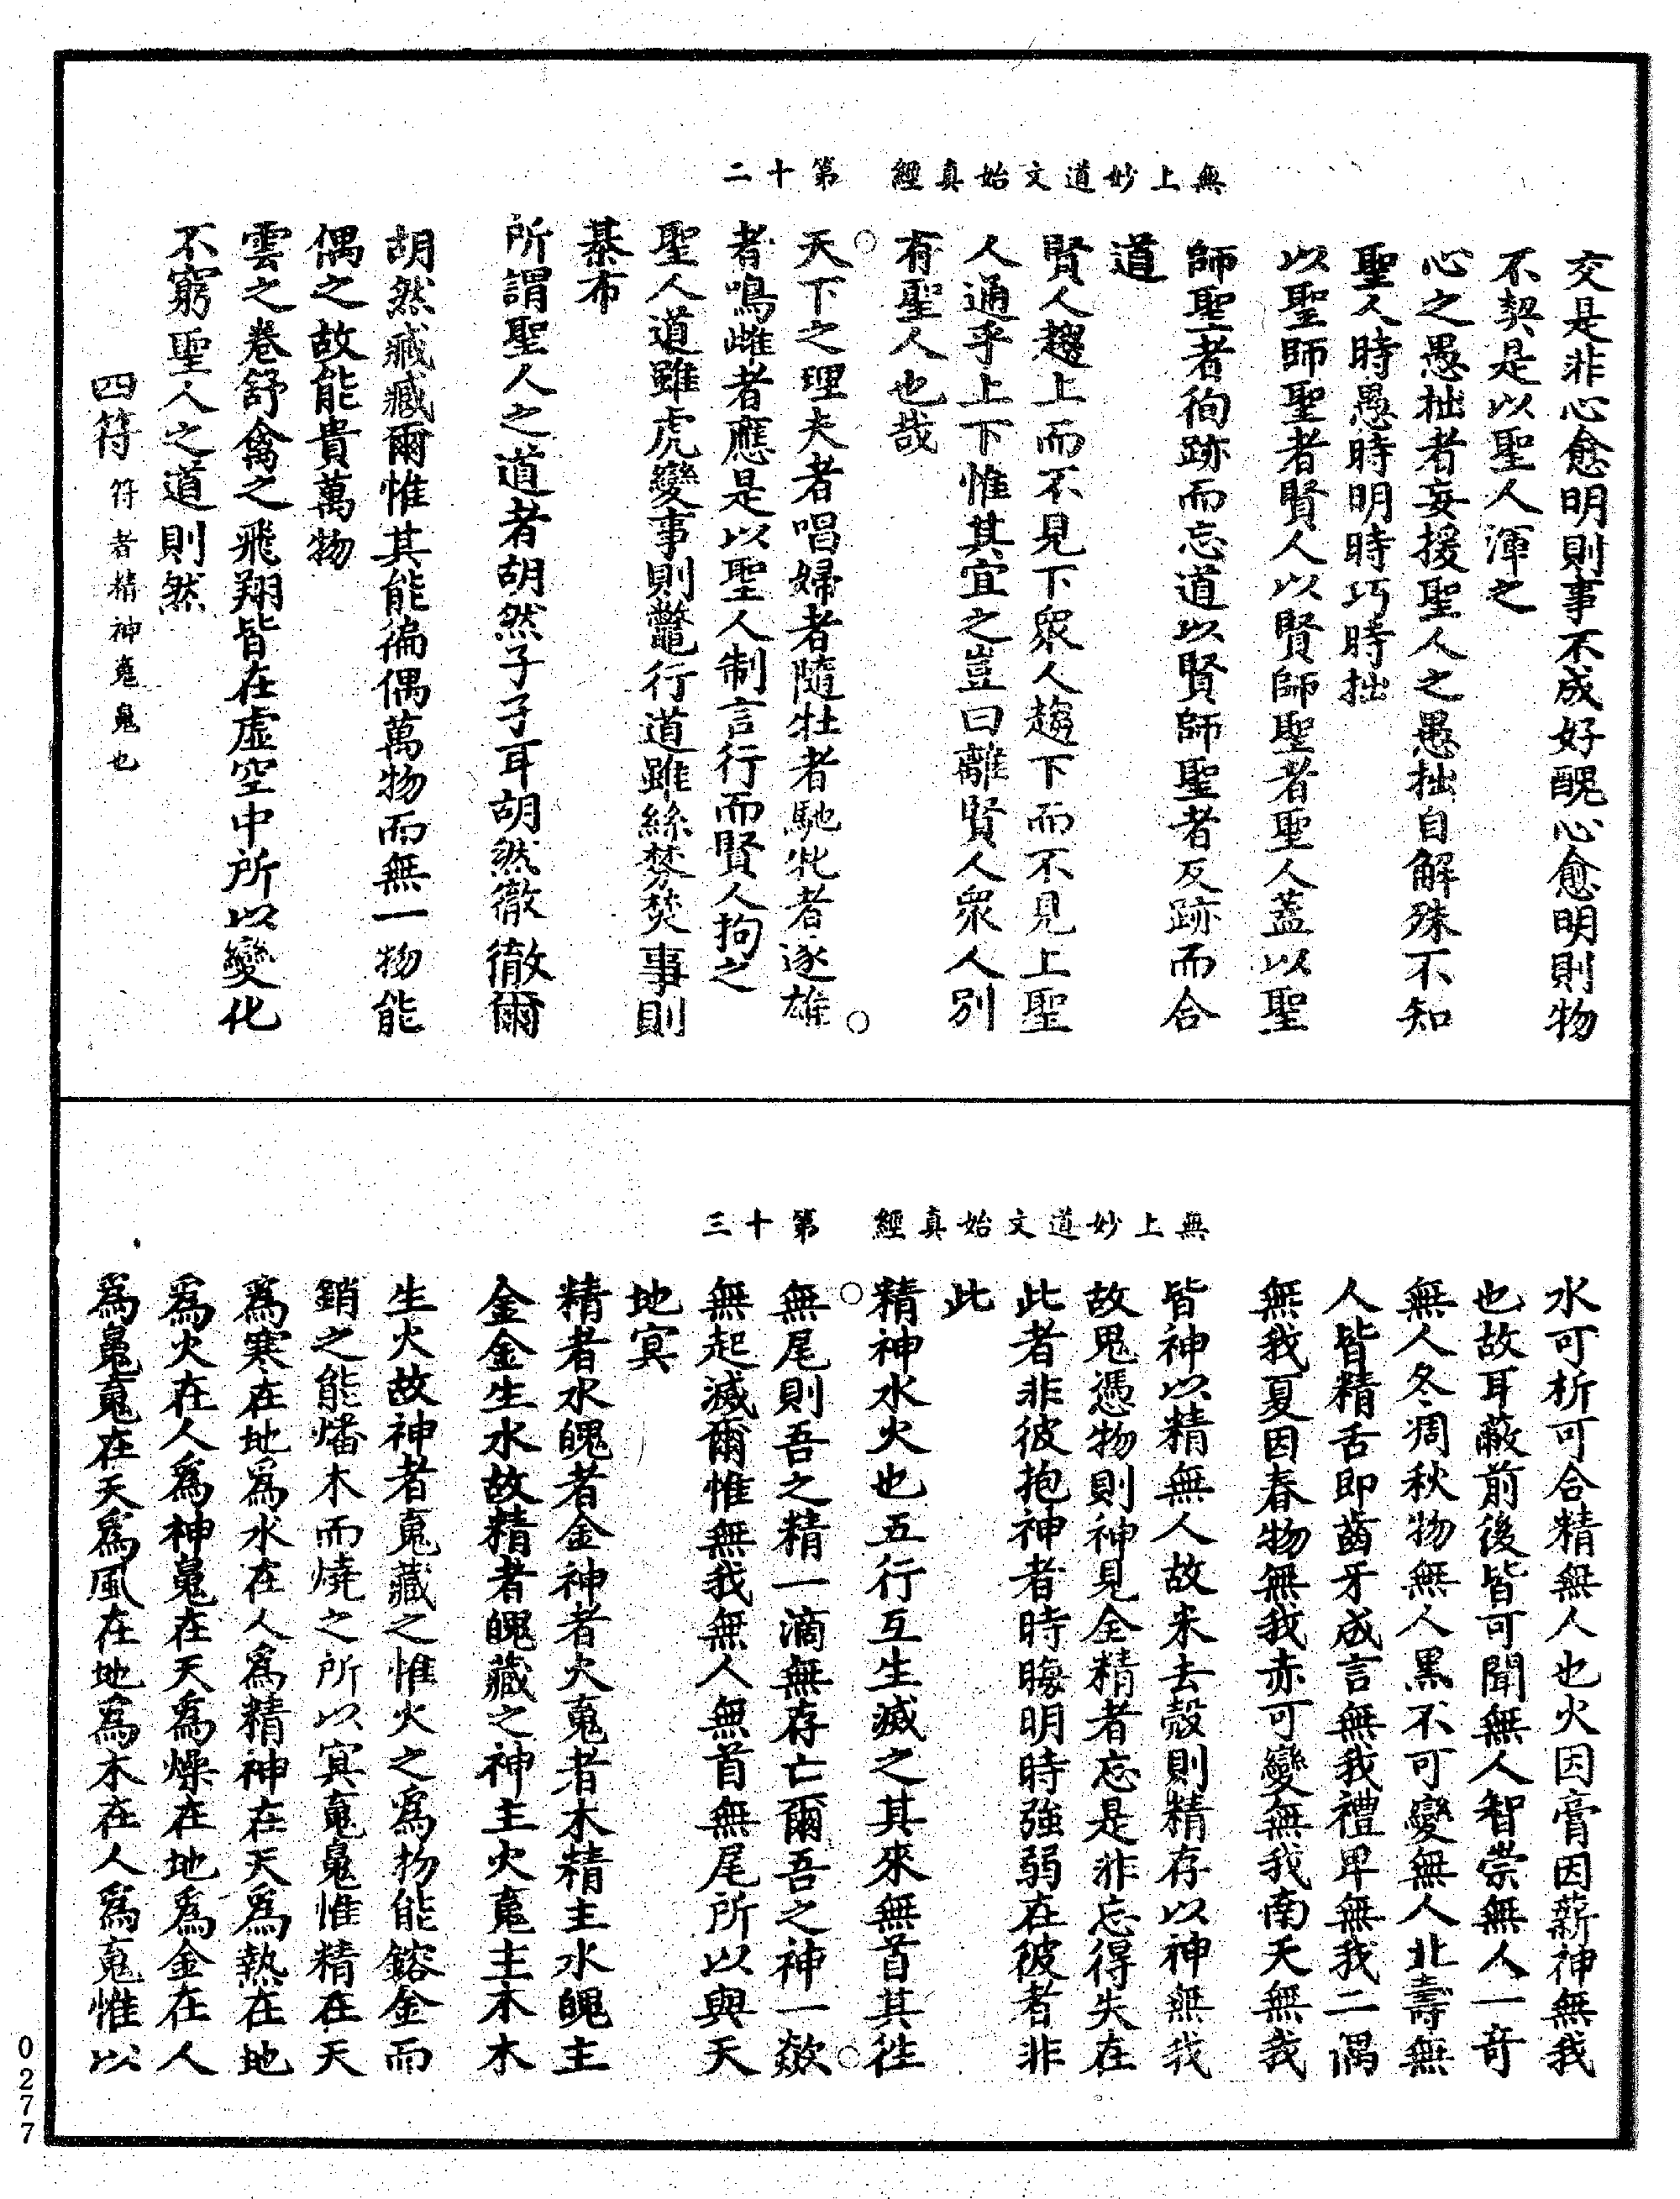 交是非心愈明則事不成好醜心愈明則物
不契是以聖人渾之
心之愚拙者妄援聖人之愚拙自解殊不知
聖人時愚時明時巧時拙
以聖師聖者賢人以賢師聖者聖人蓋以聖
師聖者徇跡而忘道以賢師聖者反跡而合
道
賢人趨上而不見下衆人趨下而不見上聖
人通乎上下惟其宜之豈曰離賢人衆人別
有聖人也哉
無上妙道文始真經 第十二
天下之理夫者唱婦者隨牡者馳牝者逐雄
者鳴雌者應是以聖人制言行而賢人拘之
聖人道雖虎變事則鼈行道雖絲棼事則
棊布
所謂聖人之道者胡然孑孑耳胡然徹徹爾
胡然臧臧爾惟其能徧偶萬物而無一物能
偶之故能貴萬物
雲之卷舒禽之飛翔皆在虛空中所以變化
不窮聖人之道則然
四符 符者精神䰟魄也
水可析可合精無人也火因膏因薪神無我
也故耳蔽前後皆可聞無人智崇無人一奇
無人冬凋秋物無人黑不可變無人北壽無
人皆精舌即齒牙成言無我禮卑無我二偶
無我夏因春物無我赤可變無我南夭無我
皆神以精無人故米去殼則精存以神無我
故鬼憑物則神見全精者忘是非忘得失在
此者非彼抱神者時晦明時強弱在彼者非
此
無上妙道文始真經 第十三
精神水火也五行互生滅之其來無首其徃
無尾則吾之精一滴無存亡爾吾之神一歘
無起滅爾惟無我無人無首無尾所以與天
地㝠
精者水魄者金神者火䰟者木精主水魄主
金金生水故精者魄藏之神主火䰟主木木
生火故神者䰟藏之惟火之爲物能鎔金而
銷之能燔木而燒之所以㝠䰟魄惟精在天
爲寒在地爲水在人爲精神在天爲熱在地
爲火在人爲神魄在天爲燥在地爲金在人
爲魄䰟在天爲風在地爲木在人爲䰟惟以
0277